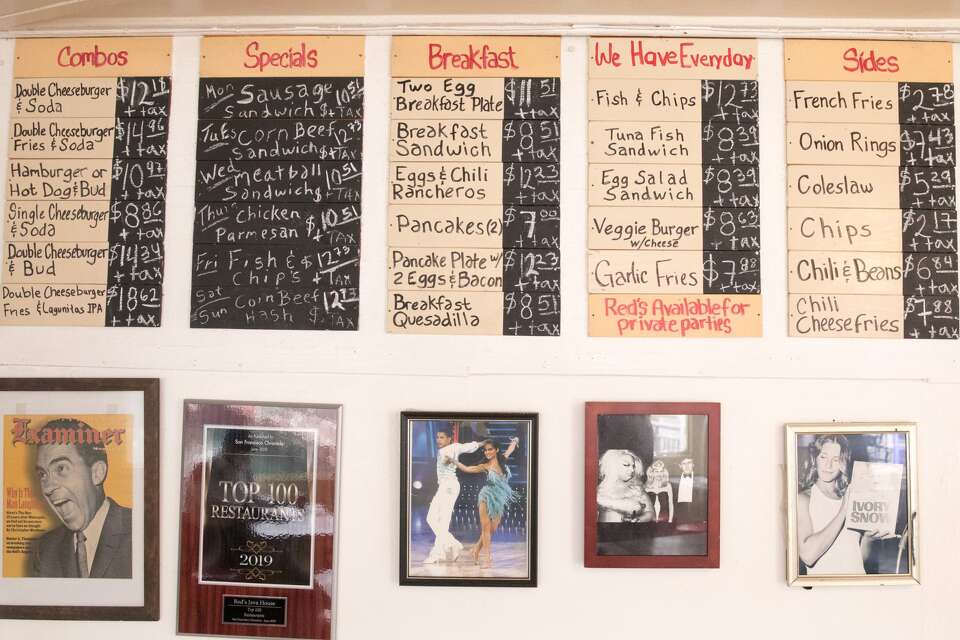 Combos
Double Cheeseburger $12.18
& Soda + tax
Double Cheeseburger $14.96
Fries & Soda + tax
Hamburger or $10.97
Hot Dog & Bud + tax
Single Cheeseburger $8.86
& Soda + tax
Double Cheeseburger $14.34
& Bud + tax
Double Cheeseburger $18.62
Fries & Lagunitas IPA + tax
Specials
Mon Sausage $10.51
Sandwich + tax
Tues Corn Beef 12.73
Sandwich $ + TAX
Wed meatball 10.51
Sandwich $ + TAX
Thur Chicken $10.51
Parmesan + TAX
Fri Fish & $12.73
Chip's + TAX
Sat Corn Beef 12.73
Sun Hash $ + tax
Breakfast
Two Egg $11.51
Breakfast Plate + tax
Breakfast $8.51
Sandwich + tax
Eggs & Chili $12.23
Rancheros + tax
Pancakes (2) $7.00 + tax
Pancake Plate w/ $12.23
2 Eggs & Bacon + tax
Breakfast $8.51
Quesadilla + tax
We Have Everyday
Fish & Chips $12.73 + tax
Tuna Fish $8.39
Sandwich + tax
Egg Salad $8.39
Sandwich + tax
Veggie Burger $8.63
w/cheese + tax
Garlic Fries $7.88 + tax
Red's Available for
private parties
Sides
French Fries $2.78 + tax
Onion Rings $7.43 + tax
Coleslaw $5.29 + tax
Chips $2.17 + tax
Chili & Beans $6.84 + tax
Chili $7.88
Cheese Fries + tax
Examiner
Why's This
Man
San Francisco Chronicle
TOP 100
RESTAURANTS
2019
Red's Java House
Top 100
Restaurants
IVORY
SNOW